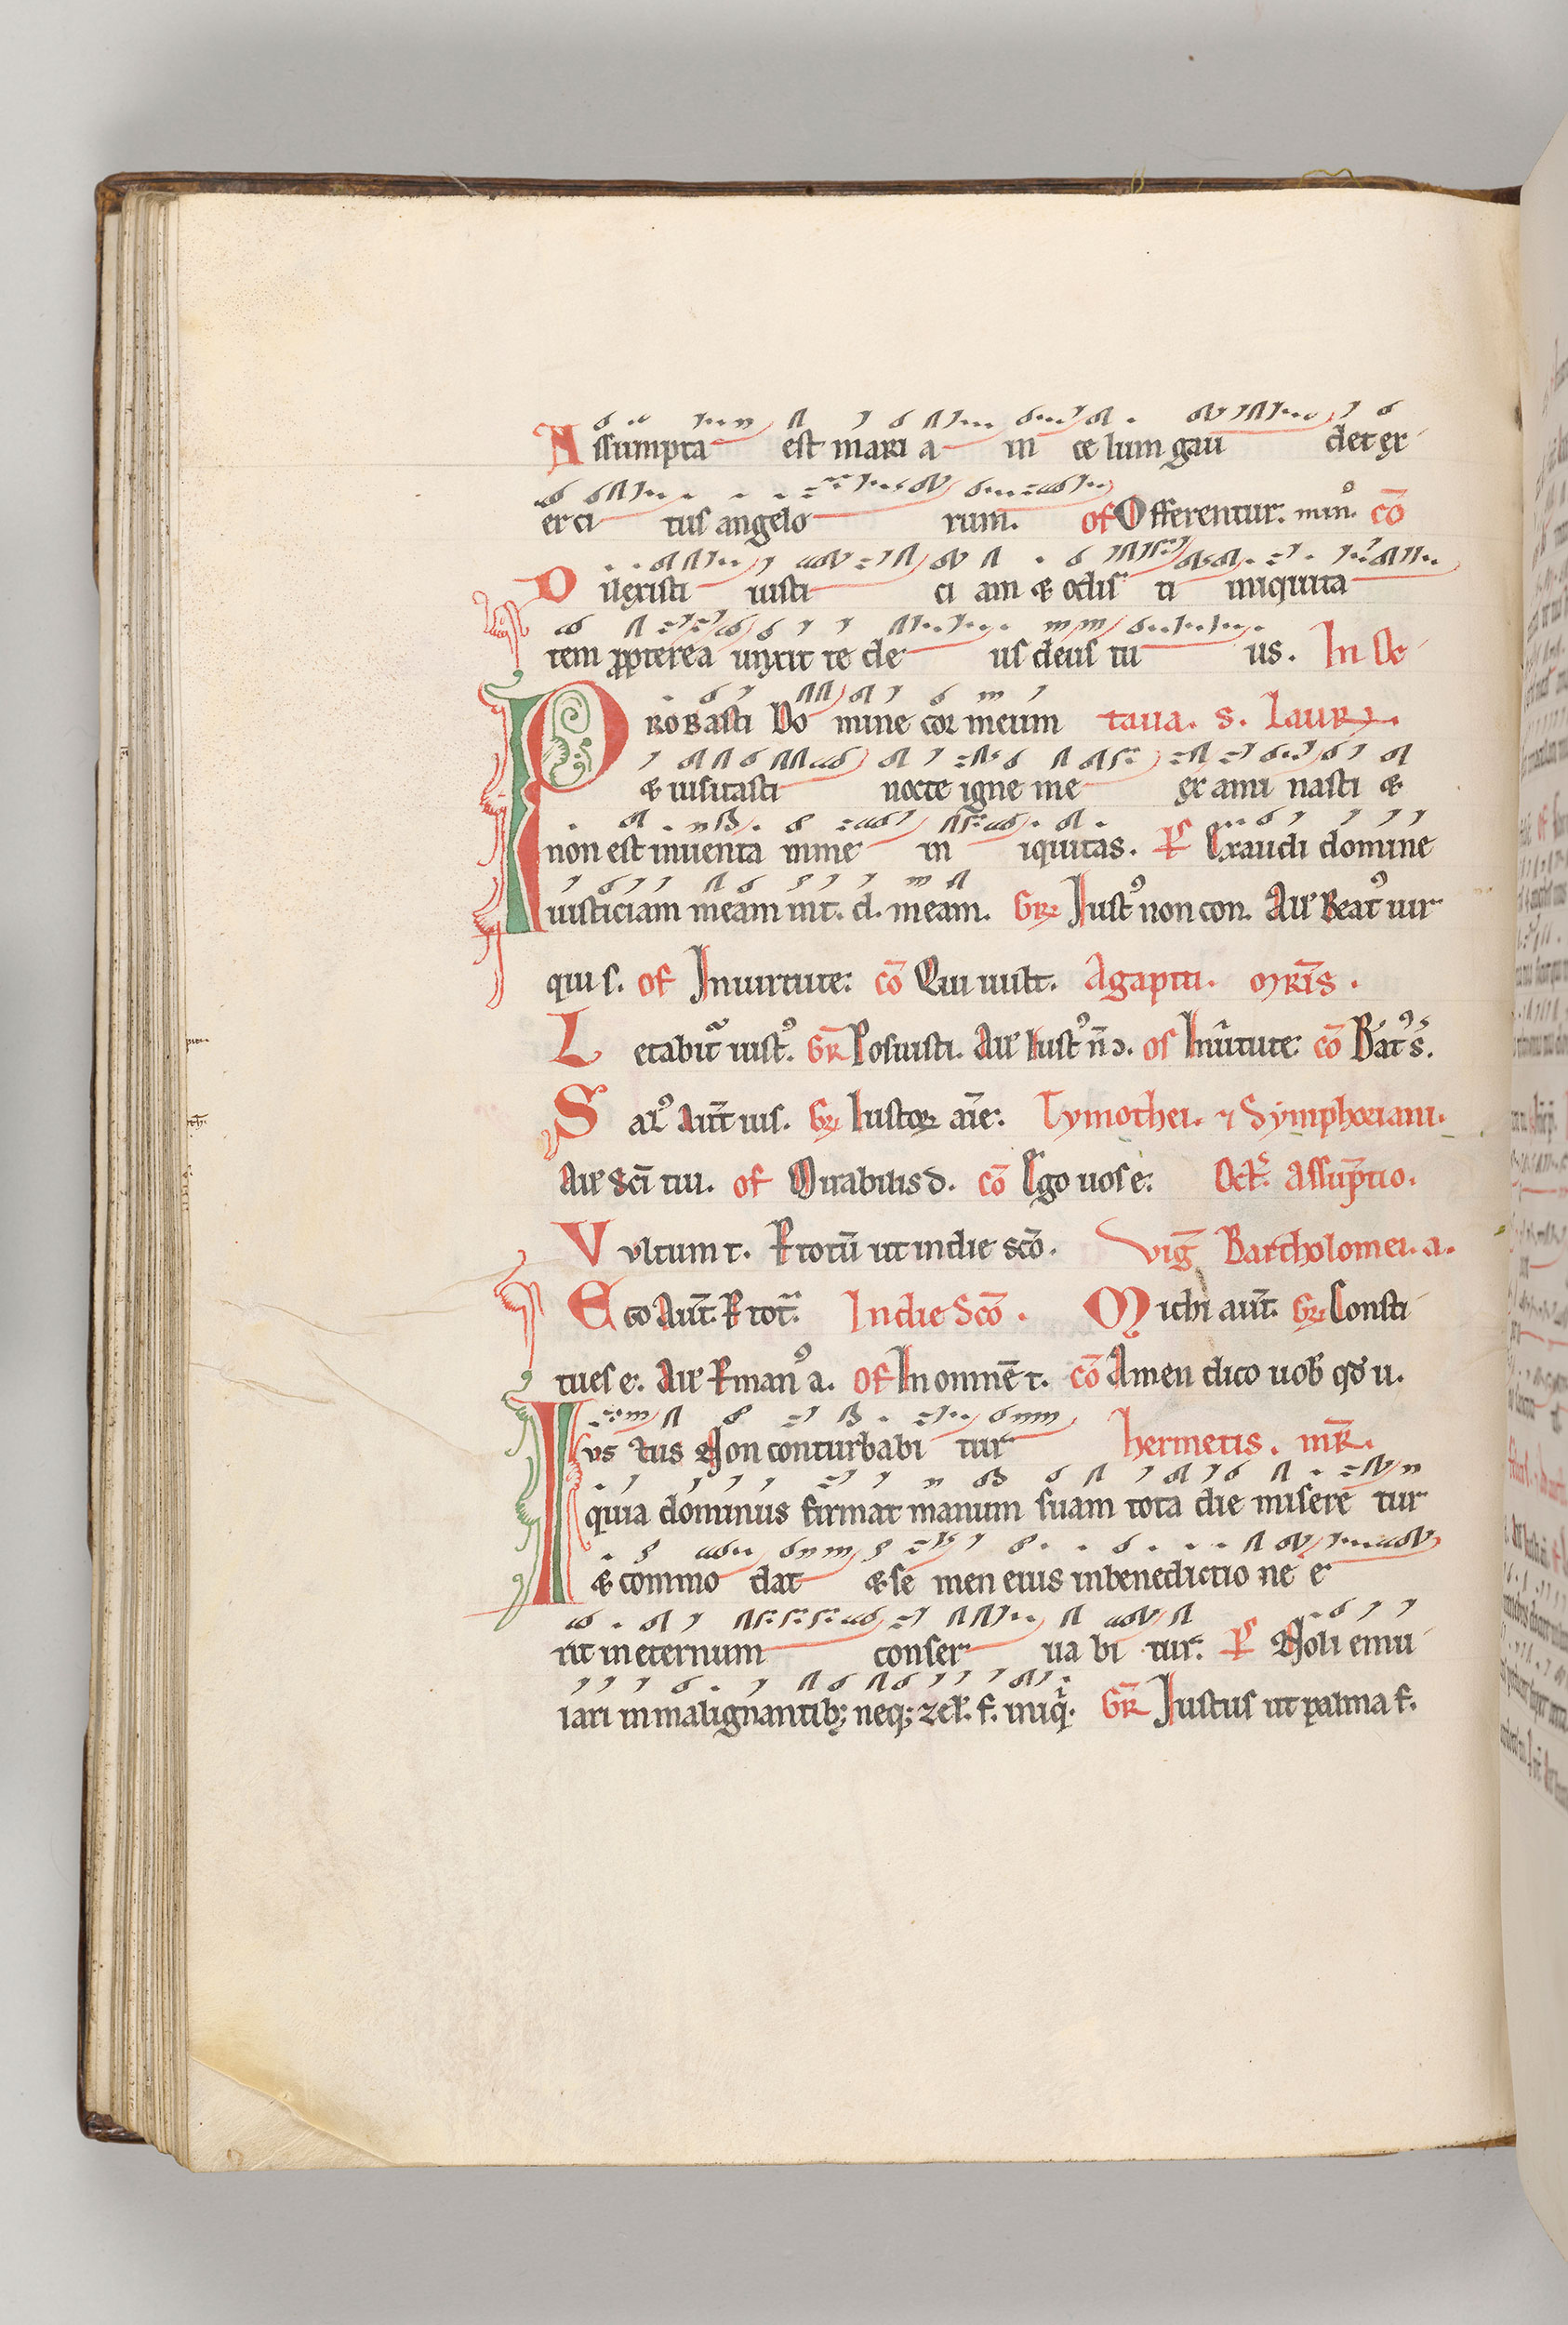 Assumpta est mari a in celum gau det ex
erci tus angelo rum. of Offerentur. min⁹. cō
Dilexisti iusti ci am & odis ti iniquita
tem propterea unxit te de us deus tu us. In Oc
PROBASTI Do mine cor meum taua. S. Laur.
& uisitasti nocte igne me ex ami nasti &
non est inuenta inme in iquitas. Ps Exaudi domine
iusticiam meam int. d. meam. Gr Iust⁹ non con. All Beat⁹ uir
qui s. of Inuirtute: cō Qui uult. Agapiti. mris.
Letabit iust⁹. Gr Posuisti. All Iust⁹ n̄ ↄ. of Inuirtute: cō Bat⁹ s.
Sal⁹ aut ius. Gr Iustor aīe: Tymothei. ⁊ Symphoriani.
All Sc̄i tui. of Mirabilis d. cō Ego uos e: Oct. assūptio.
Vultum t. R totū ut indie scō. Vig̅ Bartholomei. a.
Ego aut̄. R tot. Indie Scō. Michi aut̄. Gr Consti
tues e. All P man⁹ a. of In omnē t. cō Amen dico uob qd u.
Ius tus Non conturbabi tur hermetis. mr.
quia dominus firmat manum suam tota die misere tur
& commo dat & se men eius inbenedictio ne e
rit in eternum conser ua bi tur. Ps Noli emu
lari in malignantib; neq; zel. f. iniq. Gr Iustus ut palma f.